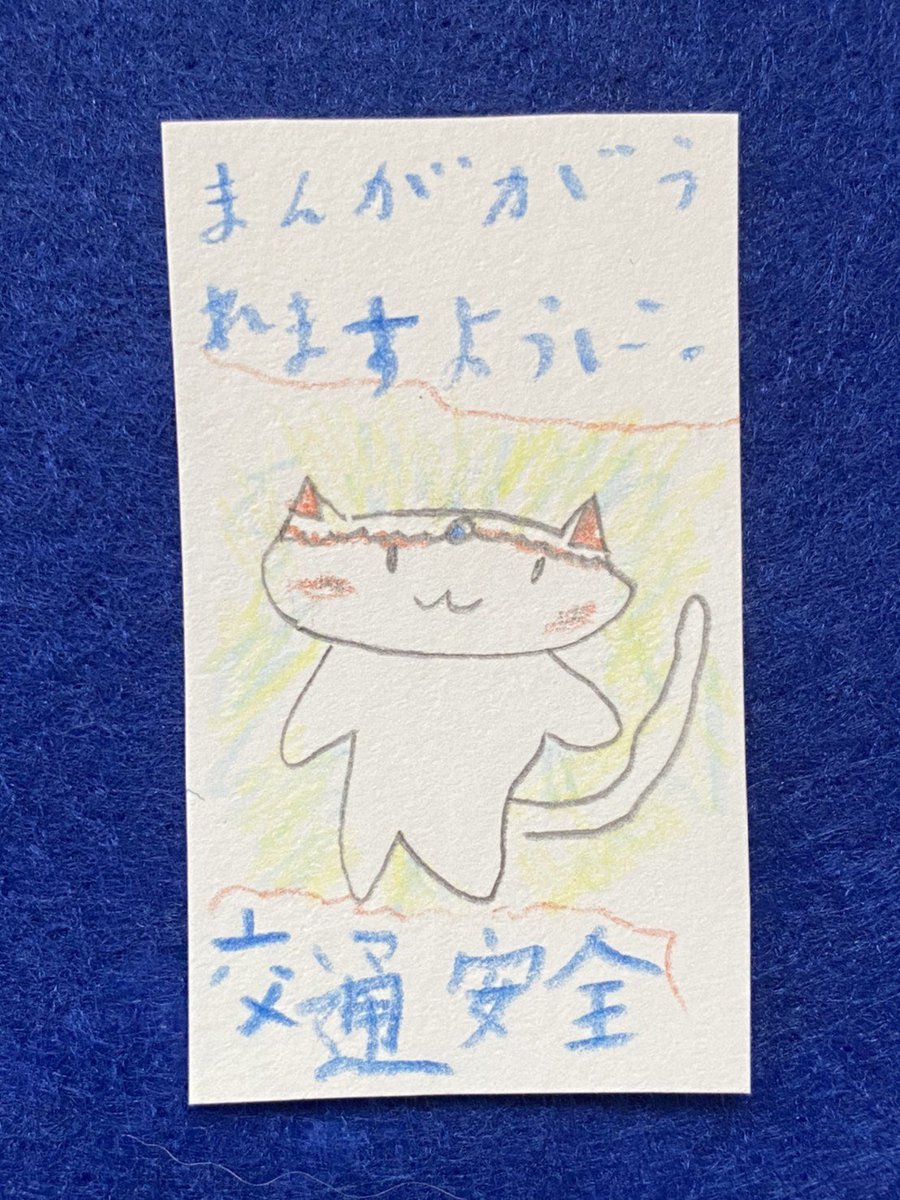 まんががう
れますように。
交通安全